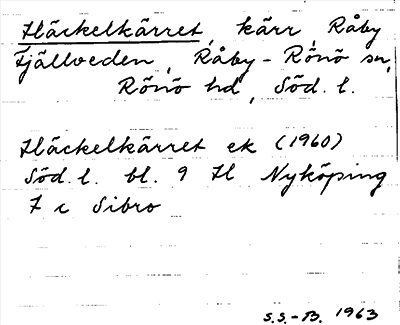 Häckelkärret, kärr, Råby
Fjällveden, Råby-Rönö sn,
Rönö hd, Söd. l.
Häckelkärret ek (1960)
Söd. l. bl. 9 H Nyköping
7 c Sibro
S.S.-B. 1963